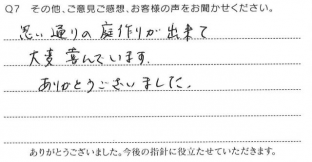 Q7 その他、ご意見ご感想、お客様の声をお聞かせください。
思い通りの庭作りが出来て
大変喜んでいます。
ありがとうございました。
ありがとうございました。今後の指針に役立たせていただきます。